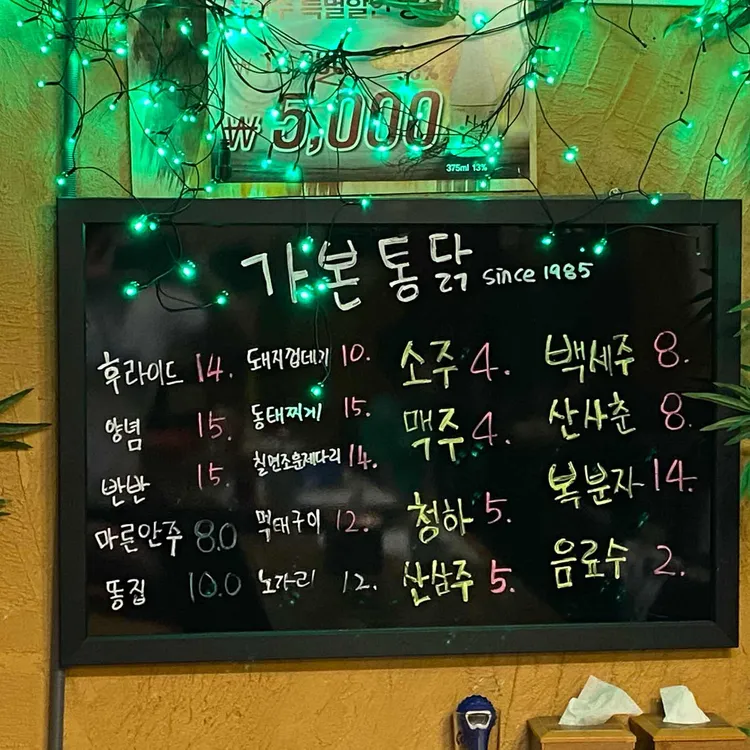 특별할인
₩ 5,000
375ml 13%
가본통닭 since 1985
후라이드 14.
양념 15.
반반 15.
마른안주 8.0
똥집 10.0
돼지껍데기 10.
동태찌게 15.
칠면조훈제다리 14.
먹태구이 12.
노가리 12.
소주 4.
맥주 4.
청하 5.
산삼주 5.
백세주 8.
산사춘 8.
복분자 14.
음료수 2.